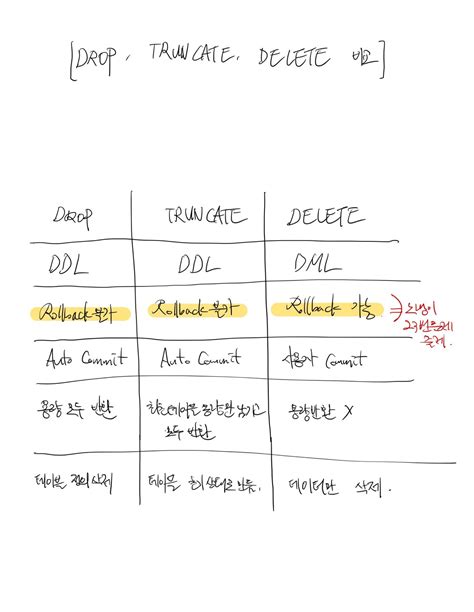 [DROP, TRUNCATE, DELETE 비교]
DROP TRUNCATE DELETE
DDL DDL DML
Rollback 불가 Rollback 불가 Rollback 가능
Auto Commit Auto Commit 사용자 Commit
용량 모두 반환 최초 테이블 용량만 남기고 용량반환 X
모두 반환
테이블 정의 삭제 테이블 초기 상태로 만듦. 데이터만 삭제.
⇒
출제.